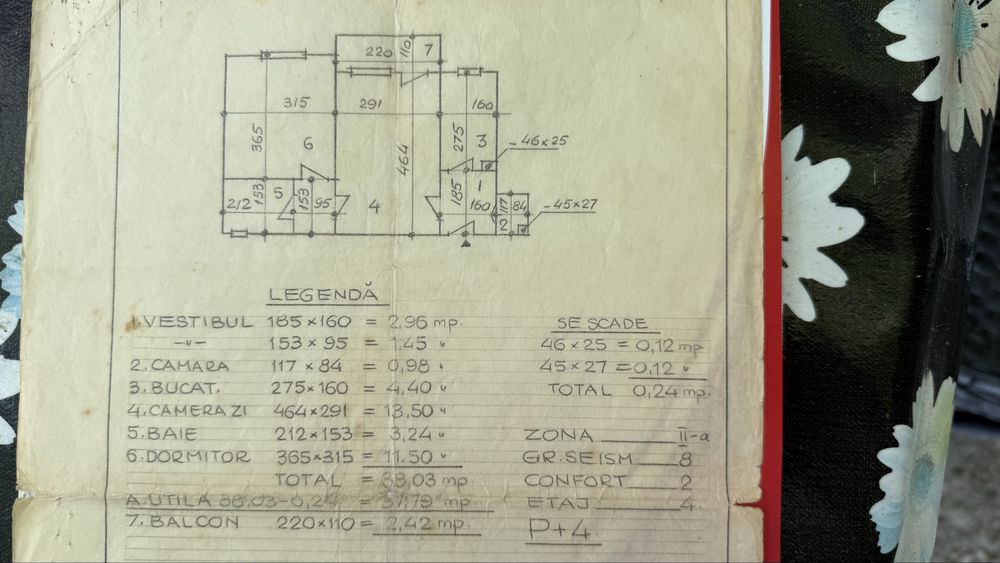 220 110 7
315 291 160
365 6 464 275 3 -46x25
153 5 153 185 1
212 95 4 160 117 84 -45x27
2
LEGENDĂ
1.VESTIBUL 185x160 = 2,96 mp.
-"- 153 x 95 = 1,45 "
2.CAMARA 117 x 84 = 0,98 "
3.BUCAT. 275x160 = 4,40 "
4.CAMERA ZI 464x291 = 13,50 "
5.BAIE 212x153 = 3,24 "
6.DORMITOR 365x315 = 11.50 "
TOTAL = 38,03 mp
A.UTILA 38.03-0,24 = 37,79 mp.
7.BALCON 220x110 = 2,42 mp.
SE SCADE
46 x 25 = 0,12 mp
45 x 27 = 0,12 "
TOTAL 0,24 mp.
ZONA II-a
GR.SEISM 8
CONFORT 2
ETAJ 4.
P+4.